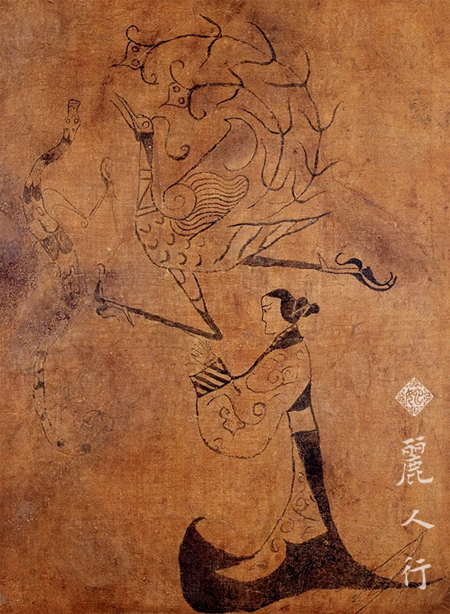 麗人行